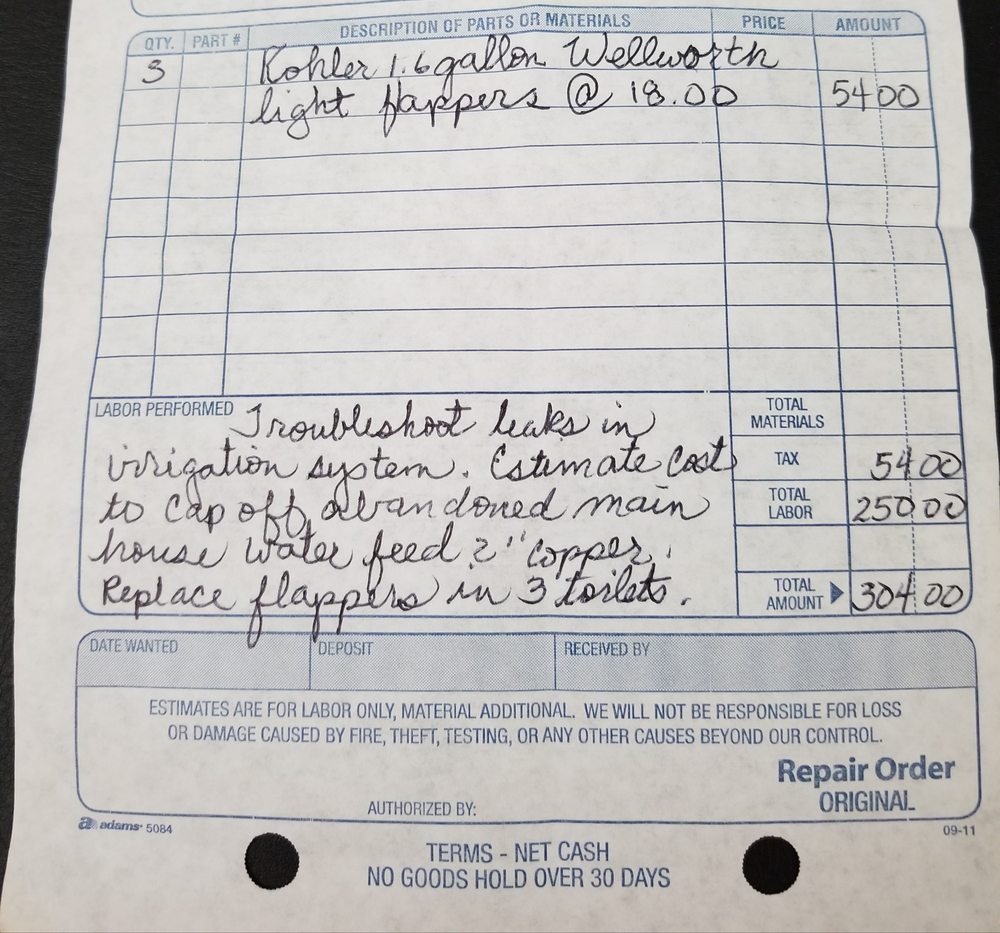 QTY. PART # DESCRIPTION OF PARTS OR MATERIALS PRICE AMOUNT
3 Kohler 1.6 gallon Wellworth
light flappers @ 18.00 54 00
LABOR PERFORMED Troubleshoot leaks in
irrigation system. Estimate cost
to cap off abandoned main
house water feed 2" copper.
Replace flappers in 3 toilets.
TOTAL
MATERIALS
TAX 54 00
TOTAL
LABOR 250 00
TOTAL
AMOUNT 304 00
DATE WANTED DEPOSIT RECEIVED BY
ESTIMATES ARE FOR LABOR ONLY, MATERIAL ADDITIONAL. WE WILL NOT BE RESPONSIBLE FOR LOSS
OR DAMAGE CAUSED BY FIRE, THEFT, TESTING, OR ANY OTHER CAUSES BEYOND OUR CONTROL.
Repair Order
ORIGINAL
AUTHORIZED BY:
adams 5084
09-11
TERMS - NET CASH
NO GOODS HOLD OVER 30 DAYS